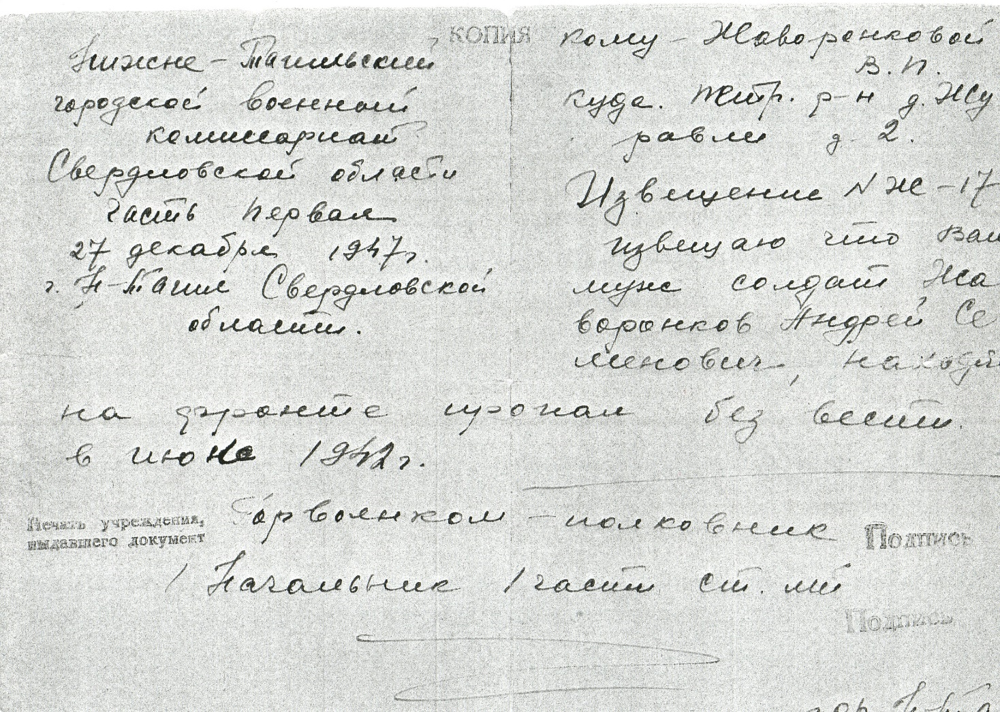 КОПИЯ
Нижне-Тагильский
городской военный
комиссариат
Свердловской области
часть первая
27 декабря 1947г.
г. Н-Тагил Свердловской
области.
кому - Жаворонковой
В.П.
куда. р-н д. Жу
равли д 2.
Извещение N Ж-17
извещаю что Ваш
муж солдат Жа
воронков Андрей Се
менович, находя
на фронте пропал без вести
в июне 1942г.
Печать учреждения,
выдавшего документ
Горвоенком - полковник
Подпись
Начальник 1 части ст. л-т
Подпись